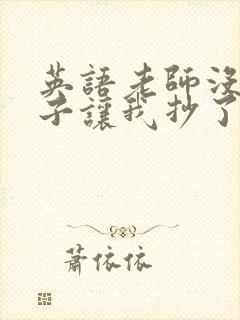 英語老師沒
子讓我抄了
蕭依依